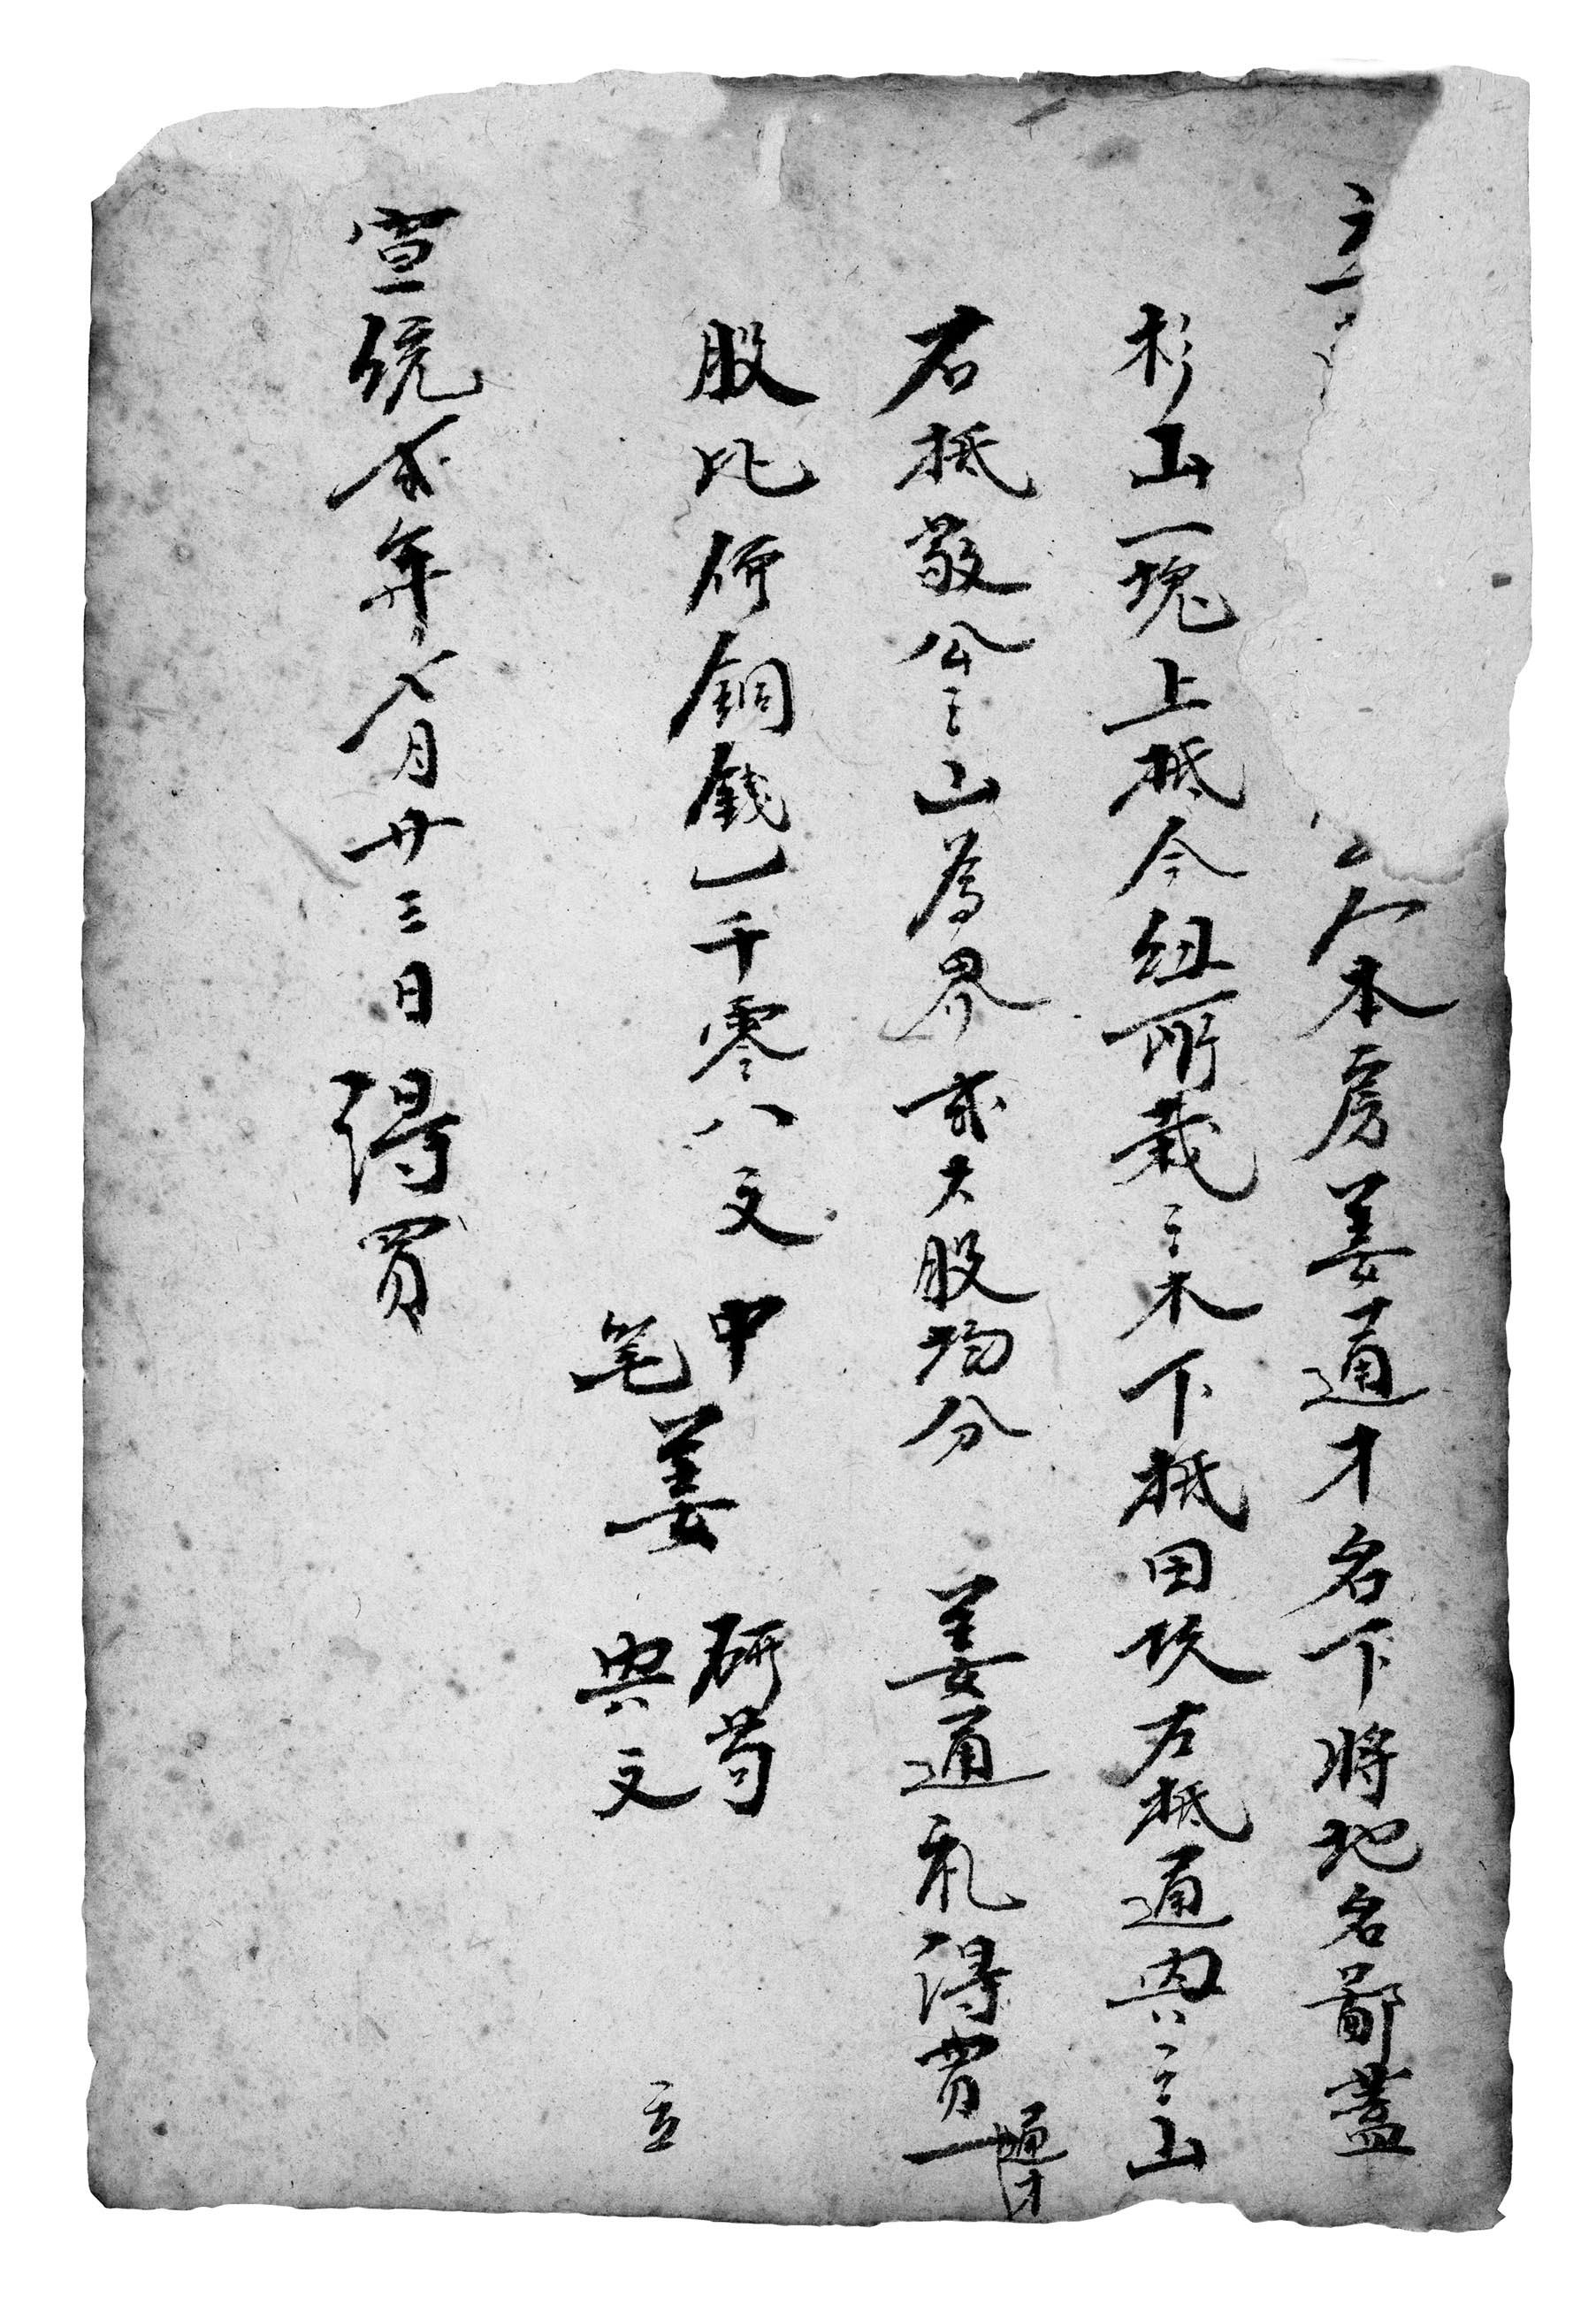 立
人本房姜通才名下將地名鄙蓋
杉山一塊上抵今組所栽之木下抵田坎左抵通典之山
右抵敬公之山為界貳大股均分 姜通禮得買一
通才
股比價銅錢一千零八文 中 姜 研芶
笔 典文
立
宣統貳年八月廿三日 得買